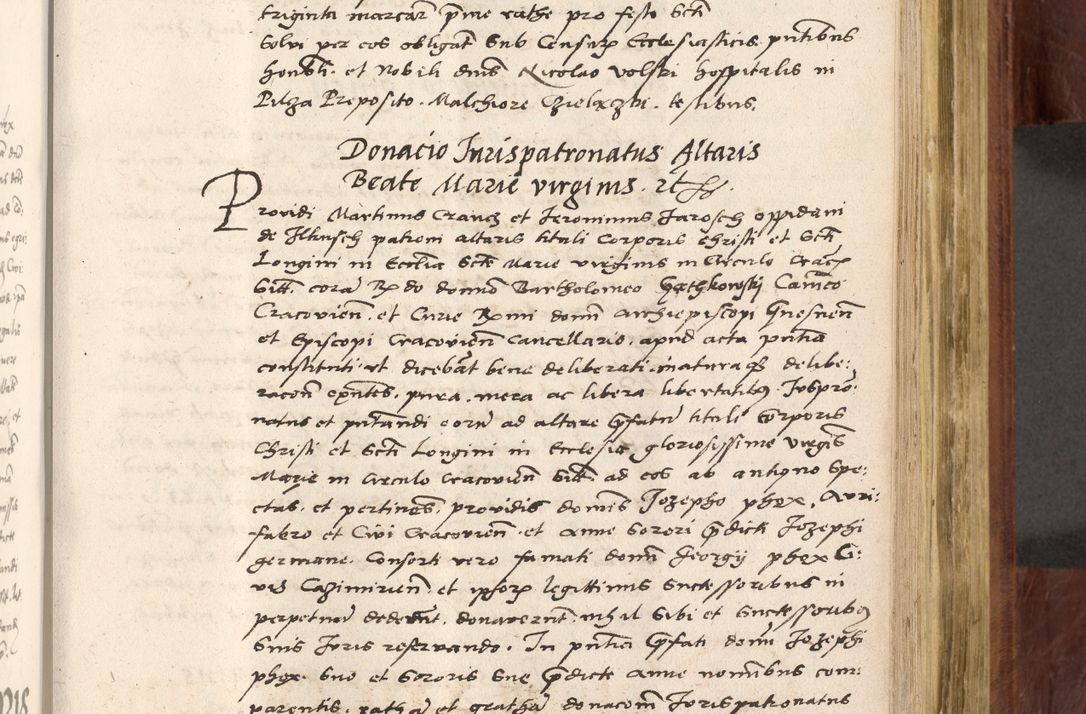 triginta marcar p̄me rathe pro festo Scti
Solvi per eos obligat Sub Censur Ecclesiasticis pntibus
honbli et Nobili dnis Nicolao Volski hospitalis in
Pilza Preposito. Malchiore testibus.
Donacio Jurispatronatus Altaris
Beate Marie virginis. etc.
Providi Martinus Crancz et Jeronimus Jarosch oppidani
de Ilkusch patroni altaris tituli Corporis Christi et Scti
Longini in Ecclia Scte Marie virginis in Circulo Crac
Sitt. corā Rdo domno Bartholomeo Canco
Cracovien. et Curie Rmi domni Archiepiscopi Gnesnen
et Episcopi Cracovien Cancellario. apud acta pntia
constituti ut dicebāt bene deliberati. matura q deliberacon
expntes. pura. mera ac libera libertatibq Juspro
natus et pntandi eorū ad altare p̄fatū tituli Corporis
Christi et Scti Longini in Ecclesia gloriosissime virgis
Marie in Circulo Cracovien Sitt. ad eos ab antiquo Spe:
ctas. et pertines. providis domis Jozepho phex. Auri:
fabro et Civi Cracovien. et Anne Sorori p̄dicti Jozephi
germane. Consorti vero famati domi Georgy phex Ci:
vis Cazimirien. et ipsor legittimis Successoribus in
perpetuū dederūt. donaverut. nihil Sibi et Successoribq
Suis Juris reservando. In pntia p̄fati domi Jozephi
phex. Suo et Sororis Sue p̄dicte Anne nominbus com:
parentis. rathā et grathā donacom Jurispatronatus